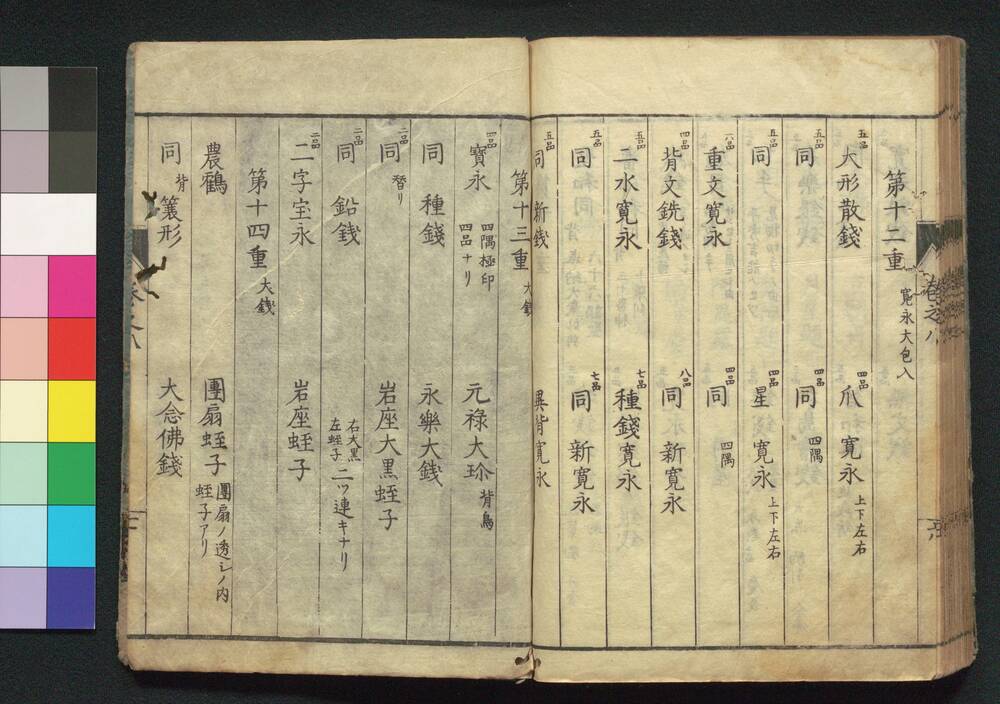 第十二重 寛永大包入
五品 大形散錢 四品 爪寛永 上下左右
五品 同 四品 同 四隅
五品 同 四品 星寛永 上下左右
六品 重文寛永 四品 同 四隅
四品 背文銑錢 八品 同 新寛永
五品 二水寛永 七品 種錢寛永
五品 同 七品 同 新寛永
五品 同 新錢 異背寛永
第十三重 大錢
四品 寳永 四隅極印 四品ナリ 元禄大珎 背島
同 種錢 永樂大錢
二品 同 替り 岩座大黒蛭子
二品 同 鉛錢 右大黒 左蛭子 二ツ連キナリ
二品 二字宝永 岩座蛭子
第十四重 大錢
農鶴 團扇蛭子 團扇ノ透シノ内 蛭子アリ
同 背 簑形 大念佛錢
巻之八